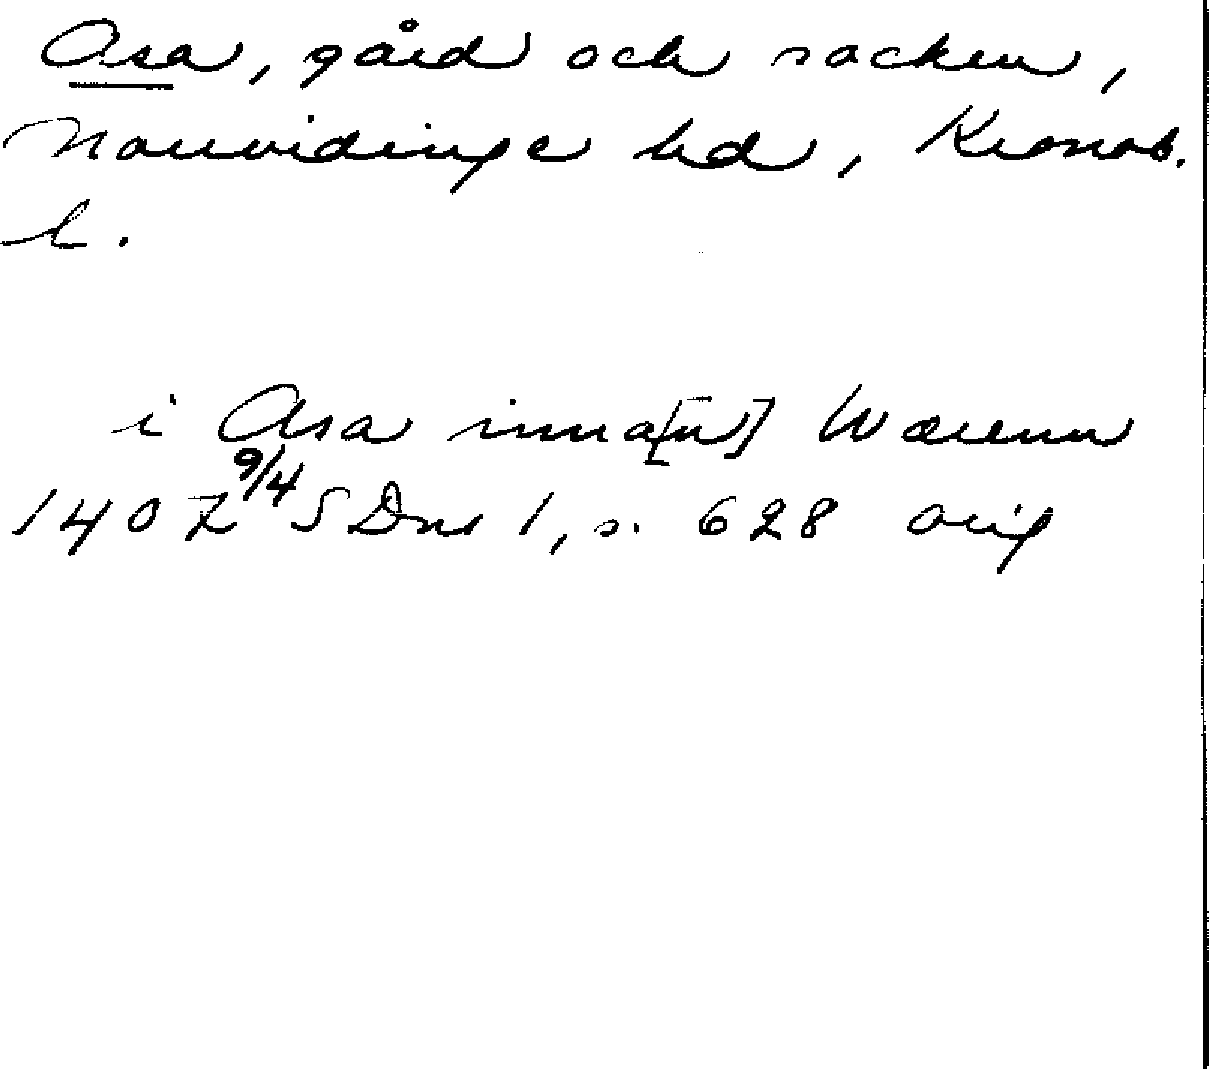 Asa, gård och socken,
Norrvidinge hd, Kronob.
l.
i Asa inna[n] Wærenn
1407 9/4 SDns 1, s. 628 orig